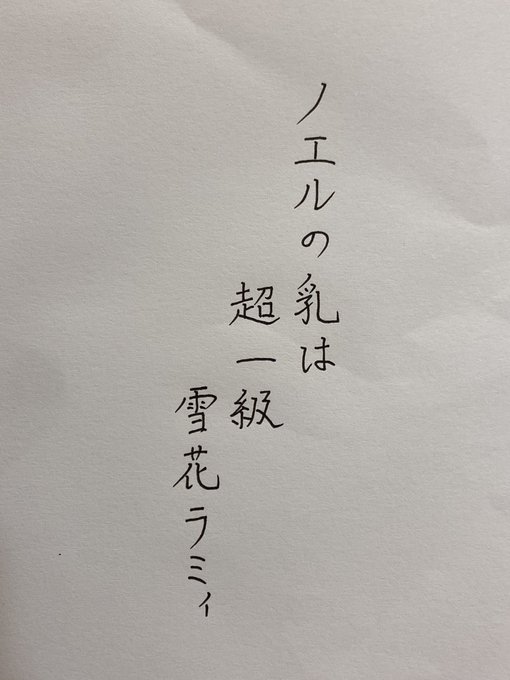 ノエルの乳は
超一級
雪花ラミィ